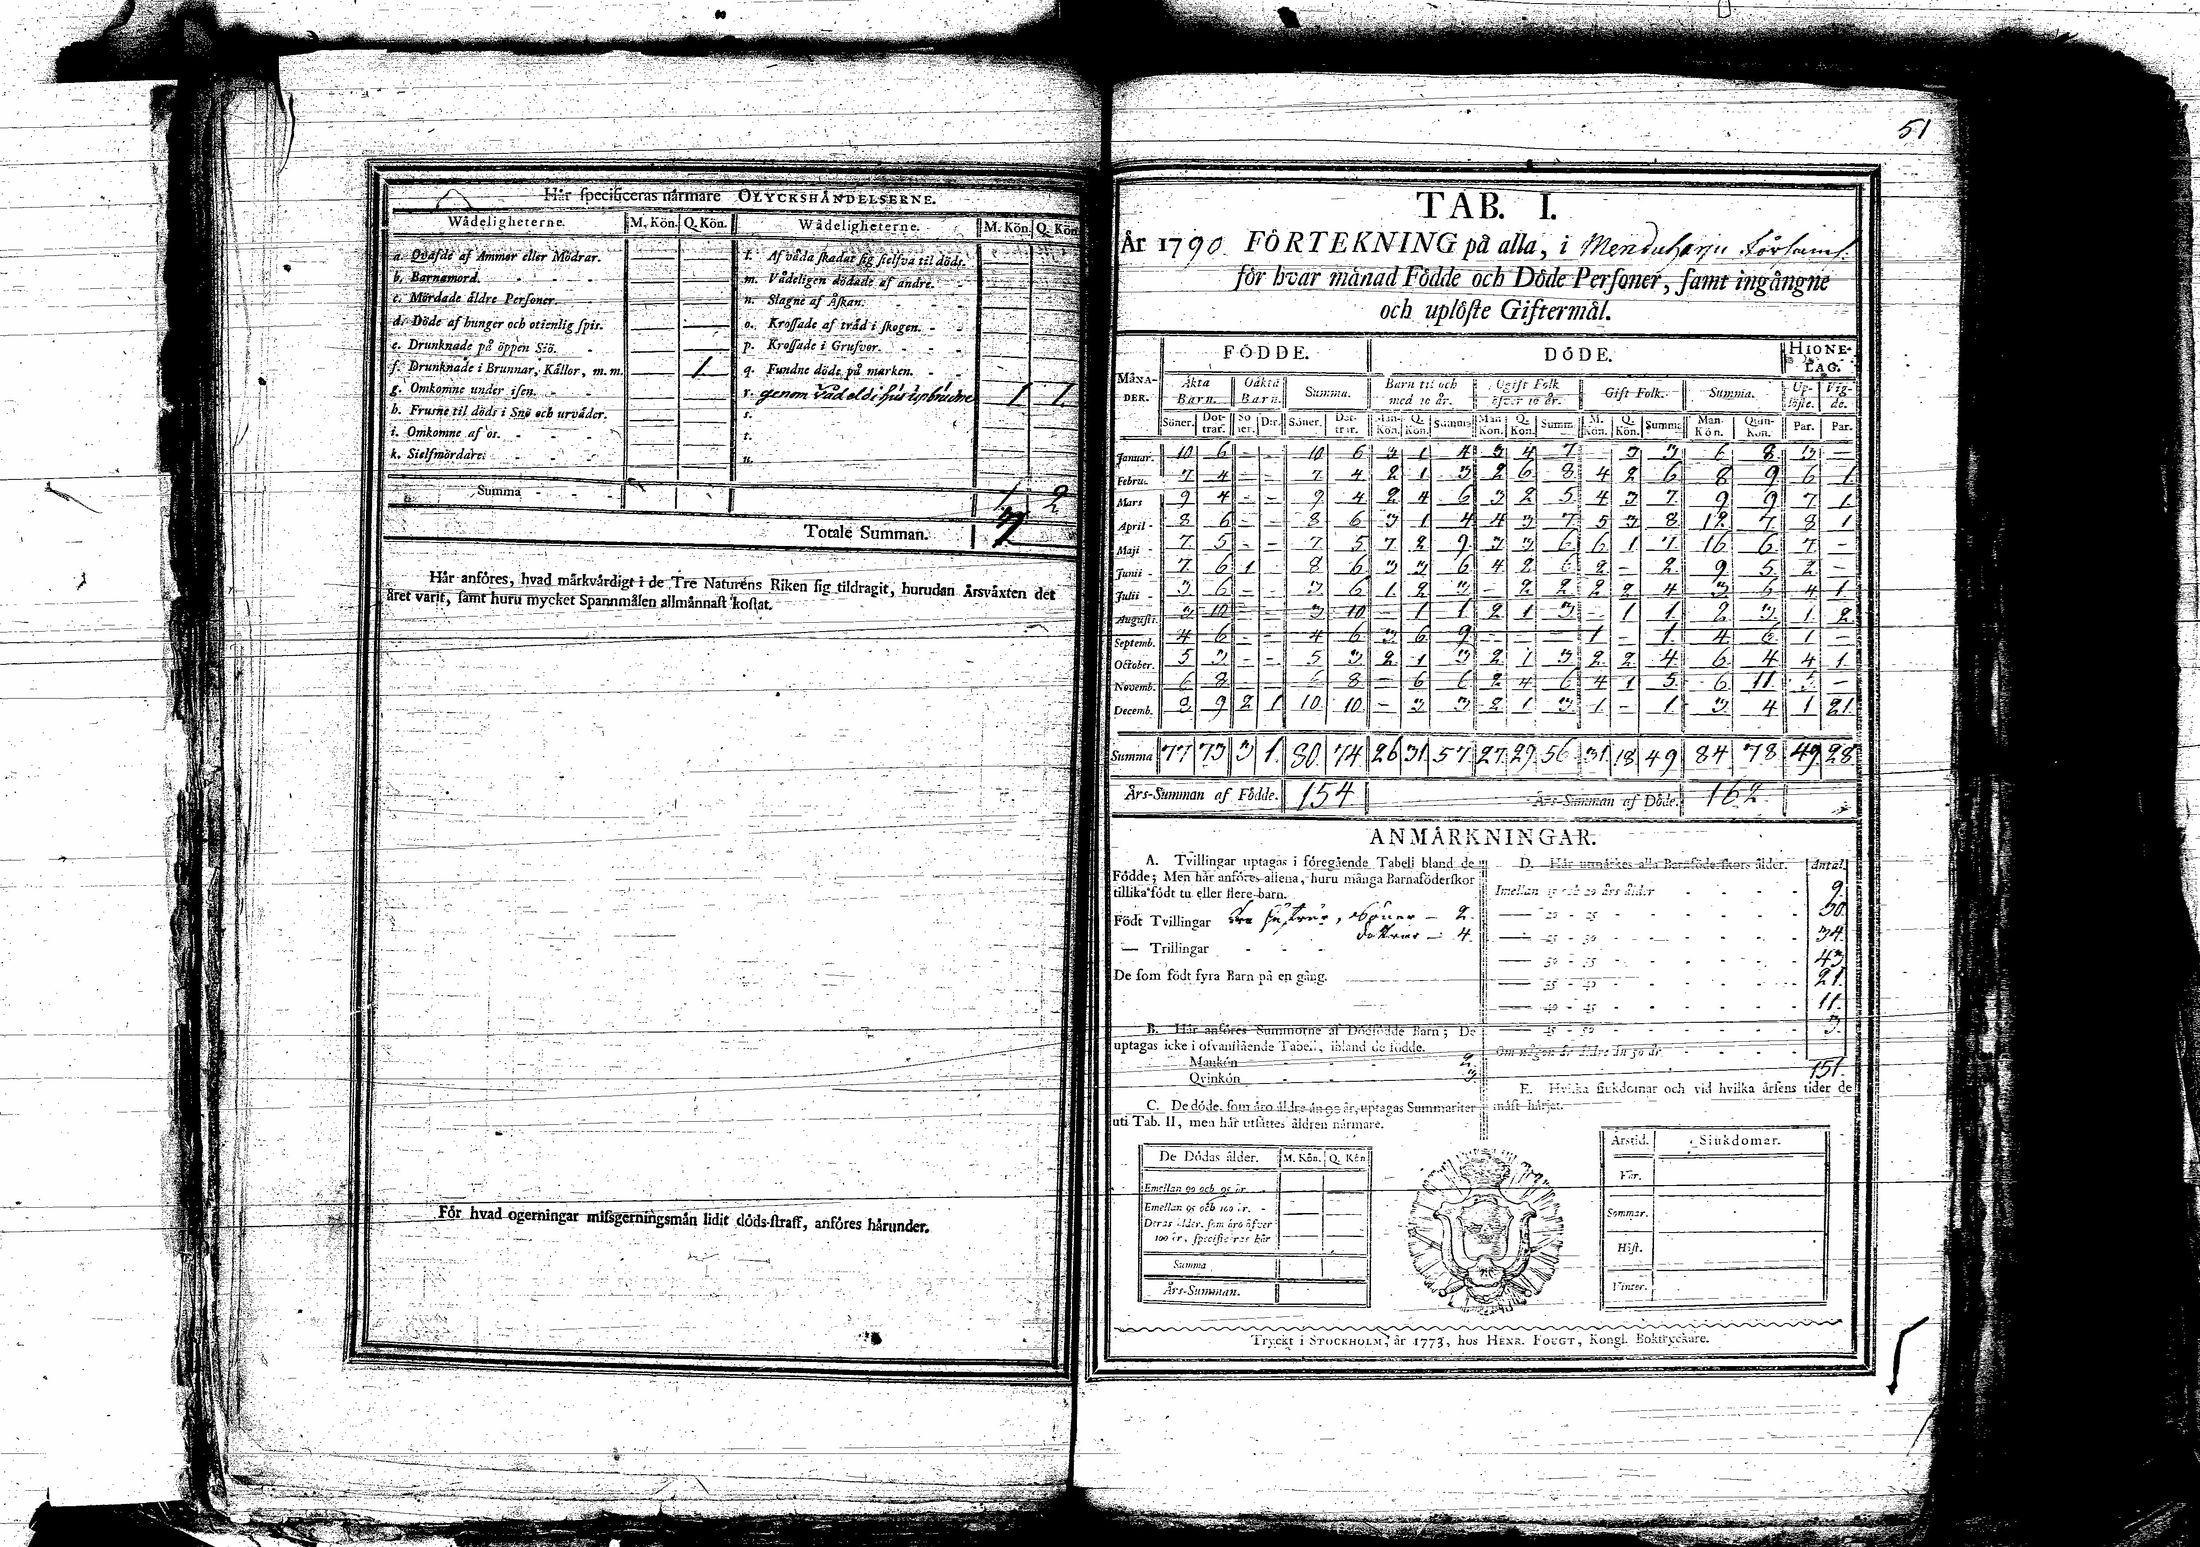 Här specificeras närmare OLYCKSHÄNDELSERNE.
Wådeligheterne. M. Kön. Q. Kön. Wådeligheterne. M. Kön. Q. Kön
a. Qvafde af Ammor eller Mödrar. l. Af våda skadat sig sielfva til döds.
b. Barnamord. - - m. Vådeligen dödade af andre. -
c. Mördade äldre Personer. n. Slagne af Åskan.
d. Döde af hunger och otienlig spis. o. Krossade af träd i skogen. -
e. Drunknade på öppen Siö. - p. Krossade i Grufvor. - -
f. Drunknade i Brunnar, Källor, m. m. 1. q. Fundne döde på marken. -
g. Omkomne under isen. - - r. genom vådeld i hus upbrundne 1 1.
h. Frusne til döds i Snö och urväder. s.
i. Omkomne af os. - - t.
k. Sielfmördare. u.
Summa - - 1 2
Totale Summan.
Här anföres, hvad märkvärdigt i de Tre Naturens Riken sig tildragit, hurudan Årsväxten det
året varit, samt huru mycket Spannmålen allmännast kostat.
För hvad ogerningar missgerningsmän lidit döds-straff, anföres härunder.
51
TAB. I.
År 1790. FÖRTEKNING på alla, i
för hvar månad Födde och Döde Personer, samt ingångne
och uplöste Giftermål.
MÅNA-DER. FÖDDE. DÖDE. HIONE-LAG.
Äkta Barn. Oäkta Barn. Summa. Barn til och med 10 år. Ogift Folk öfver 10 år. Gift Folk. Summa. Up-löste. Vig-de.
Söner. Dot-trar. Sö ner. D:r. Söner. Dot-trar. Man-Kön. Q. Kön. Summa Man Kön. Q. Kön. Summ M. Kön. Q. Kön. Summa Man-Kön. Quin-Kön. Par. Par.
Januar. 10 6 - - 10 6 3 1 4 3 4 7 - 3 3 6 8 3 -
Febru. 7 4 - - 7 4 2 1 3 2 6 8 4 2 6 8 9 6 1
Mars 9 4 - - 9 4 2 4 6 3 2 5 4 3 7 9 9 7 1
April - 8 6 - - 8 6 3 1 4 4 3 7 5 3 8 12 7 8 1
Maji - 7 5 - - 7 5 7 2 9 3 3 6 6 1 7 16 6 7 -
Junii - 7 6 1 8 6 3 3 6 4 2 6 2 - 2 9 5 2 -
Julii - 3 6 - - 3 6 1 2 3 - 2 2 2 2 4 3 6 4 1
Augusti. 3 10 - - 3 10 - 1 1 2 1 3 - 1 1 2 3 1 2
Septemb. 4 6 - - 4 6 3 6 9 - - - 1 - 1 4 6 1 -
October. 5 3 - - 5 3 2 1 3 2 1 3 2 2 4 6 4 4 1
Novemb. 6 8 - - 6 8 - 6 6 2 4 6 4 1 5 6 11 5 -
Decemb. 8 9 2 1 10 10 - 3 3 2 1 3 1 - 1 3 4 1 21
Summa 77 73 3 1 80 74 26 31 57 27 29 56 31 18 49 84 78 49 28
Års-Summan af Födde. 154 Års-Summan af Döde. 162
ANMÄRKNINGAR.
A. Tvillingar uptagas i föregående Tabell bland de
Födde; Men här anföres allena, huru många Barnaföderskor
tillika födt tu eller flere barn.
Födt Tvillingar Söner - 2
dottrar - 4.
— Trillingar - - -
De som födt fyra Barn på en gång.
B. Här anföres Summorne af Dödfödde Barn; De
uptagas icke i ofvanstående Tabell, ibland de födde.
Mankön - - 2
Qvinkön - - 3
C. De döde, som äro äldre än 90 år, uptagas Summariter
uti Tab. II, men här utsättes åldren närmare.
De Dödas ålder. M. Kön. Q. Kön
Emellan 90 och 95 år.
Emellan 95 och 100 år. -
Deras ålder, som äro öfver
100 år, specificeras här
Summa
Års-Summan.
D. Här utmärkes alla Barnföderskors ålder. Antal
Imellan 15 och 20 års ålder - - - 9
— 20 - 25 - - - - 30
— 25 - 30 - - - - 34
— 30 - 35 - - - - 43
— 35 - 40 - - - - 21
— 40 - 45 - - - - 11
— 45 - 50 - - - - 3
Om någon är äldre än 50 år. - - -
151
E. Hvilka siukdomar och vid hvilka årsens tider de
mäst härjet.
Årstid. Siukdomar.
Vår.
Sommar.
Höst.
Vinter.
Tryckt i STOCKHOLM, år 1773, hos HENR. FOUGT, Kongl. Boktryckare.